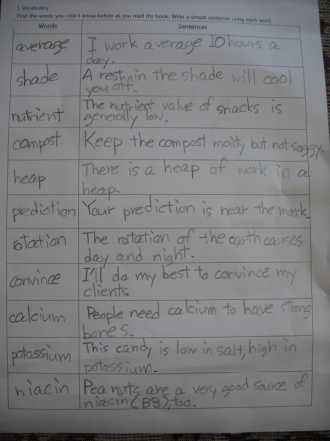 3. Vocabulary
Find the words you didn't know before as you read the book. Write a simple sentence using each word.
Words Sentences
average I work average 10 hours a
day.
shade A rest in the shade will cool
you off.
nutrient The nutrient value of snacks is
generally low.
compost Keep the compost moist, but not soggy.
heap There is a heap of work in a
heap.
prediction Your prediction is near the mark.
rotation The rotation of the earth causes
day and night.
convince I'll do my best to convince my
clients.
calcium People need calcium to have strong
bones.
potassium This candy is low in salt, high in
potassium.
niacin Peanuts are a very good source of
niacin (B3), too.